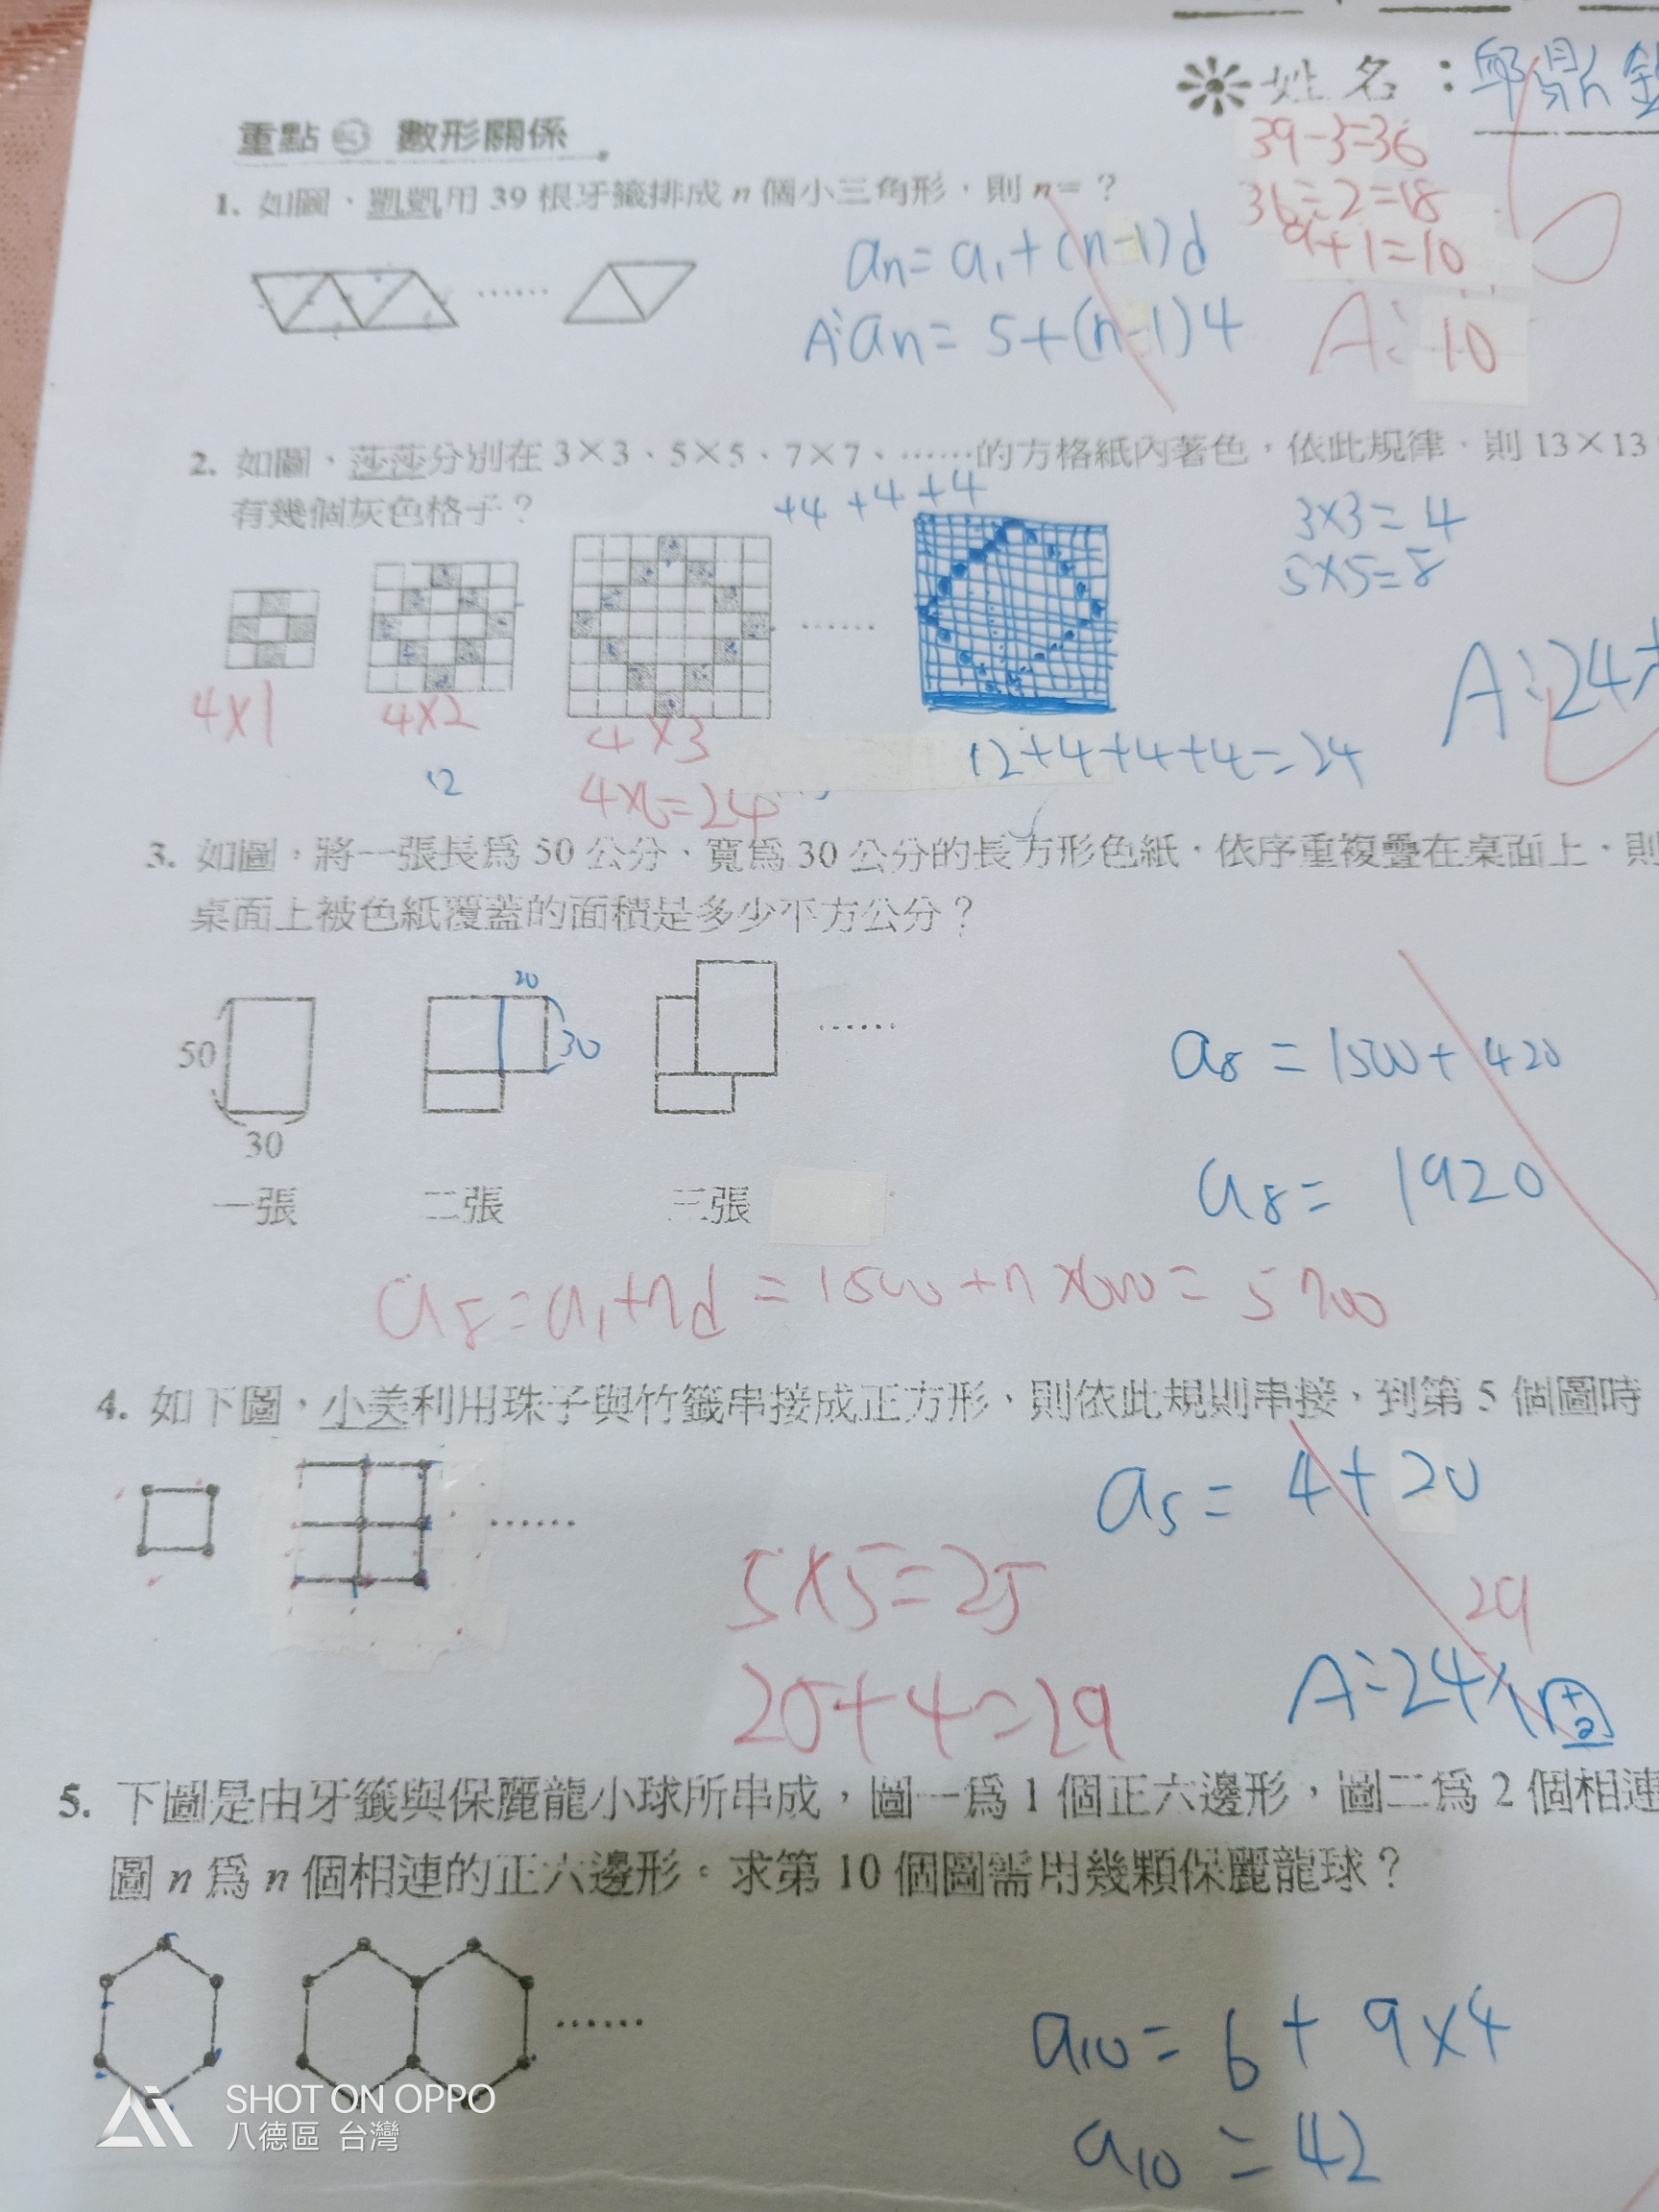 姓名：邱鼎
39-3=36
重點 數形關係
36÷2=18
1. 如圖，凱凱用 39 根牙籤排成 n 個小三角形，則 n=？
9+1=10
an=a1+(n-1)d
A:an=5+(n-1)4
A: 10
2. 如圖，莎莎分別在 3×3、5×5、7×7、……的方格紙內著色，依此規律，則 13×13
有幾個灰色格子？
+4 +4 +4
3×3=4
5×5=8
……
A:24
4×1
4×2
4×3
12
12+4+4+4=24
4×6=24
3. 如圖，將一張長為 50 公分、寬為 30 公分的長方形色紙，依序重複疊在桌面上，則
桌面上被色紙覆蓋的面積是多少平方公分？
20
50
30
……
a8=1500+420
30
a8=1920
一張 二張 三張
a8=a1+7d=1500+7×600=5700
4. 如下圖，小美利用珠子與竹籤串接成正方形，則依此規則串接，到第 5 個圖時
……
a5=4+20
5×5=25
29
A:24個
25+4=29
5. 下圖是由牙籤與保麗龍小球所串成，圖一為 1 個正六邊形，圖二為 2 個相連
圖 n 為 n 個相連的正六邊形。求第 10 個圖需用幾顆保麗龍球？
……
a10=6+9×4
a10=42
SHOT ON OPPO
八德區 台灣